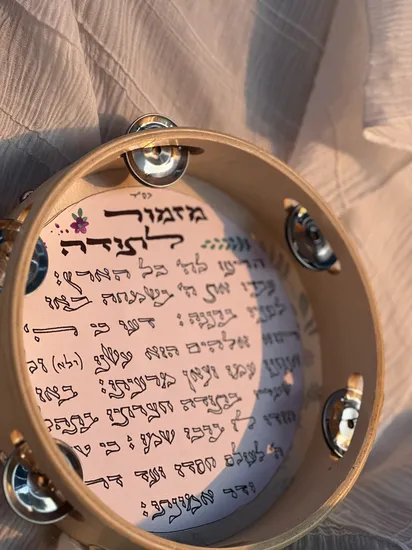 בס"ד
מזמור
לתודה
הריעו לה' כל הארץ:
עבדו את ה' בשמחה באו
לפניו ברננה: דעו כי ה'
הוא אלהים הוא עשנו (ולא)
עמו וצאן מרעיתו: באו
שעריו בתודה חצרתיו
לו ברכו שמו: כי
ה' לעולם חסדו ועד דר
ודר אמונתו: